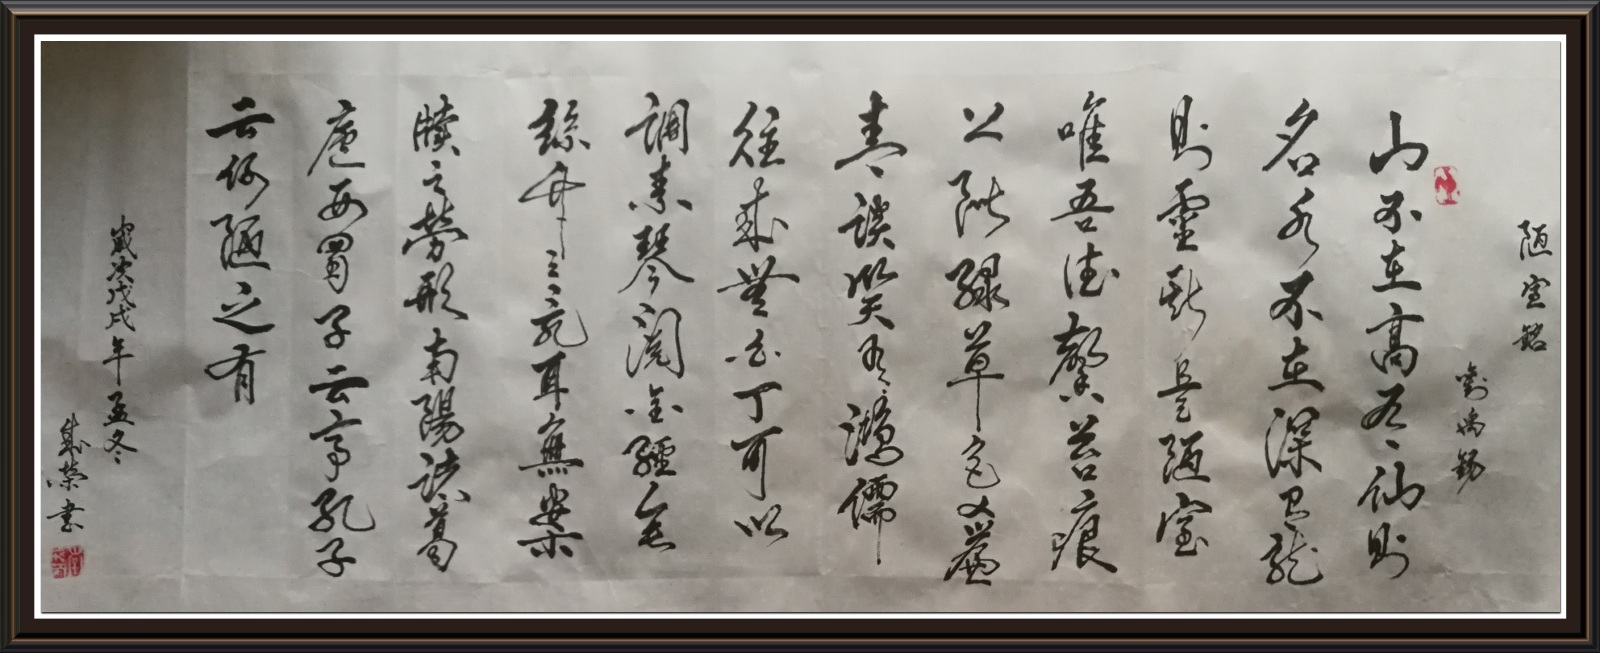 陋室銘
劉禹錫
山不在高有仙則
名水不在深有龍
則靈斯是陋室
唯吾德馨苔痕
上階綠草色入簾
青談笑有鴻儒
往來無白丁可以
調素琴閱金經無
絲竹之亂耳無案
牘之勞形南陽諸葛
廬西蜀子云亭孔子
云何陋之有
歲次戊戌年孟冬
榮書